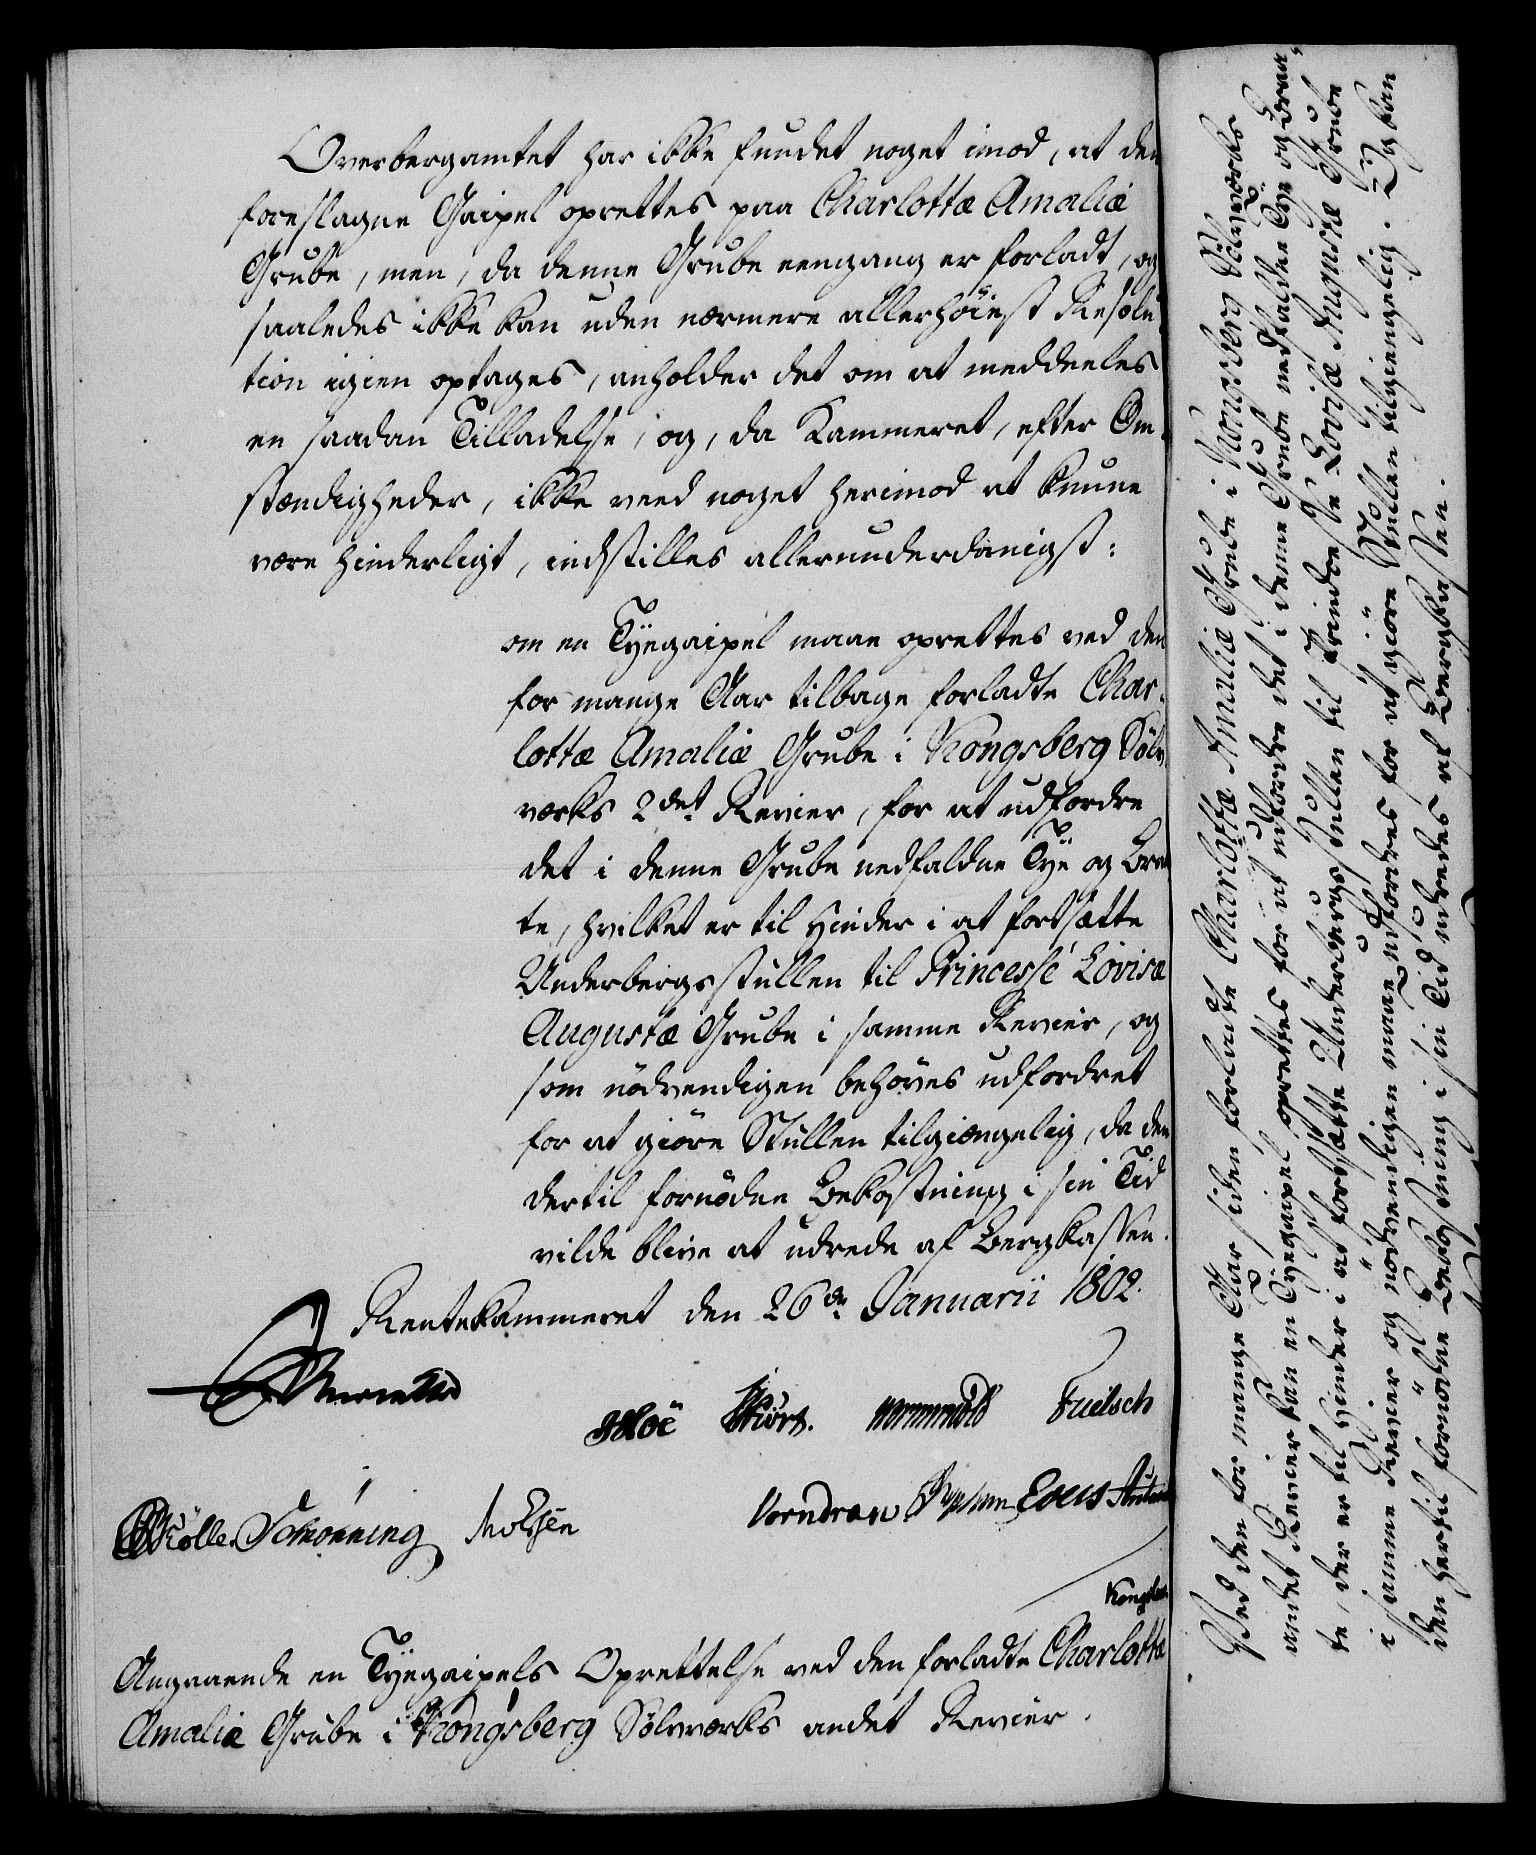 Overbergamtet har ikke fundet noget imod, at den
foreslagne Gaipel oprettes paa Charlottæ Amaliæ
Grube, men, da denne Grube eengang er forladt, og
saaledes ikke kan uden nærmere allerhöiest Resolu
tion igien optages, anholder det om at meddeeles
en saadan Tilladelse, og, da Kammeret, efter Om-
stændigheder, ikke veed noget herimod at kunne
være hinderligt, indstilles allerunderdanigst:
om en Tÿegaipel maae oprettes ved den
for mange Aar tilbage forladte Char-
lottæ Amaliæ Grube i Kongsberg Sölv
værks 2det Revier, for at udfordre
det i denne Grube nedfaldne Tÿe og Braa
te, hvilket er til Hinder i at fortsætte
Underbergsstullen til Princesse Lovisæ
Augustæ Grube i samme Revier, og
som nödvendigen behöves udfordret
for at giöre Stullen tilgiængelig, da den
dertil fornödne Bekostning i sin Tid
vilde blive at udrede af Bergkassen.
Rentekammeret den 26de Januarii 1802.
Hoë Kiört. Wormskiold Fuelsch
Mölle. Schönning Molzen Vorndran Eoers
Angaaende en Tÿegaipels Oprettelse ved den forladte Charlottæ
Amaliæ Grube i Kongsberg Sölvværks andet Revier.
Ved den for mange Aar siden forladte Charlottæ Amaliæ Grube i Kongsberg Sölvværks
andet Revier kan en Tÿegaipel oprettes for at udfordre det i denne Grube nedfaldne Tÿe og Braa
te, der er til Hinder i at fortsætte Underbergsstullen til Prindsesse Lovisæ Augustæ Grube
i samme Revier og nödvendigen maae udfordres for at giöre Stullen tilgiængelig. Og kan
den hertil fornödne Bekostning i sin Tid udredes af Bergkassen.